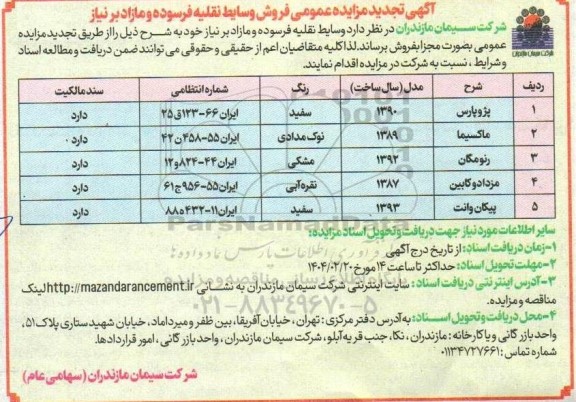 آگهی تجدید مزایده عمومی فروش وسایط نقلیه فرسوده و مازاد بر نیاز
شرکت سیمان مازندران در نظر دارد وسایط نقلیه فرسوده و مازاد بر نیاز خود به شرح ذیل را از طریق تجدید مزایده
عمومی بصورت مجزا بفروش برساند. لذا کلیه متقاضیان اعم از حقیقی و حقوقی می توانند ضمن دریافت و مطالعه اسناد
و شرایط ، نسبت به شرکت در مزایده اقدام نمایند.
ردیف شرح مدل (سال ساخت) رنگ شماره انتظامی سند مالکیت
۱ پژو پارس ۱۳۹۰ سفید ایران ۶۶-۱۲۳ق۲۵ دارد
۲ ماکسیما ۱۳۸۹ نوک مدادی ایران ۵۵-۴۵۸ن۴۲ دارد
۳ رنو مگان ۱۳۹۲ مشکی ایران ۴۴-۸۲۴و۱۲ دارد
۴ مزدا دو کابین ۱۳۸۷ نقره آبی ایران ۵۵-۹۵۶ج۶۱ دارد
۵ پیکان وانت ۱۳۹۳ سفید ایران ۱۱-۴۳۲ه۸۸ دارد
سایر اطلاعات مورد نیاز جهت دریافت و تحویل اسناد مزایده:
۱-زمان دریافت اسناد: از تاریخ درج آگهی
۲-مهلت تحویل اسناد: حداکثر تا ساعت ۱۴ مورخ ۱۴۰۴/۰۲/۲۰
۳-آدرس اینترنتی دریافت اسناد: سایت اینترنتی شرکت سیمان مازندران به نشانی http://mazandarancement.ir لینک
مناقصه و مزایده.
۴-محل دریافت و تحویل اسناد: به آدرس دفتر مرکزی: تهران ، خیابان آفریقا، بین ظفر و میرداماد، خیابان شهید ستاری پلاک ۵۱،
واحد بازرگانی و یا کارخانه : مازندران ، نکا، جنب قریه آبلو، شرکت سیمان مازندران ، واحد بازرگانی ، امور قراردادها.
شماره تماس : ۰۱۱۳۴۷۲۷۶۶۱
شرکت سیمان مازندران (سهامی عام)
ParsNamadData
۰۲۱-۸۸۳۴۹۶۷۰-۵